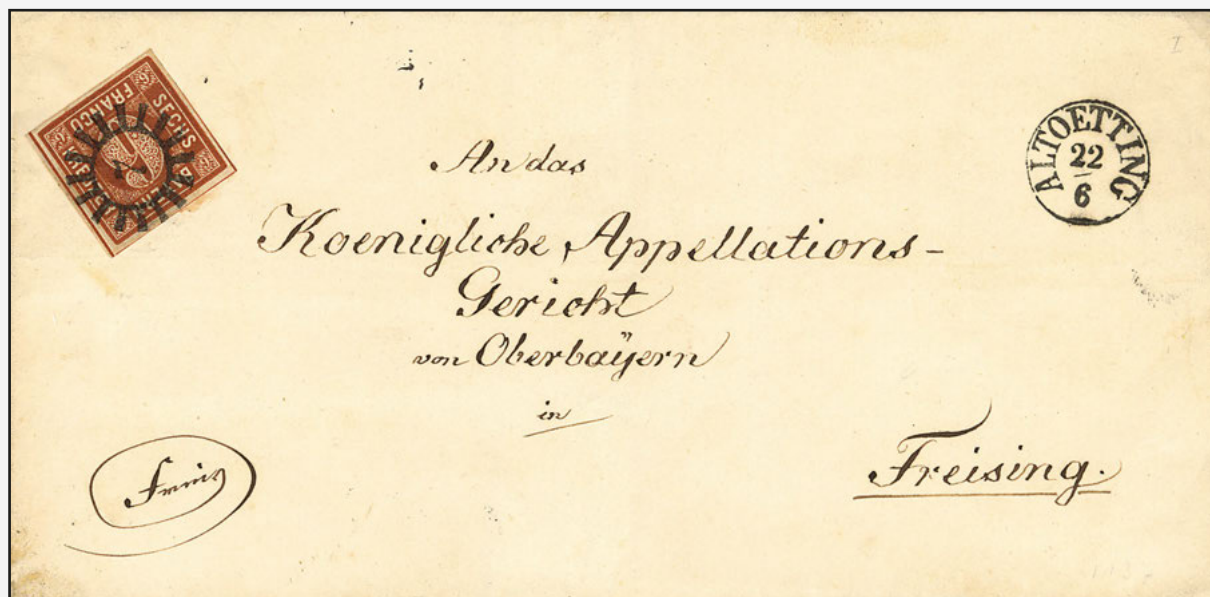 FRANCO
SECHS
ALTOETTING
22
6
An das
Koenigliche Appellations-
Gericht
von Oberbaÿern
in
Freising.